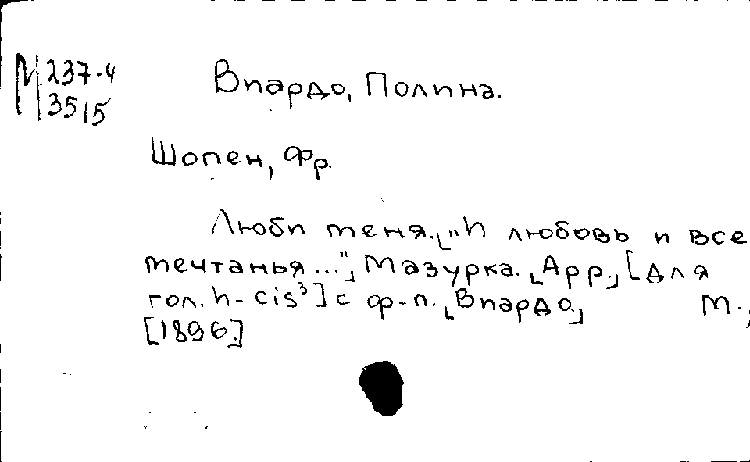 М 237-4
3515
Виардо, Полина.
Шопен, Фр.
Люби меня. ["И любовь и все
мечтанья..."] Мазурка. [Арр.] [для
гол. h-cis³] с ф-п. [Виардо] М.,
[1896.]